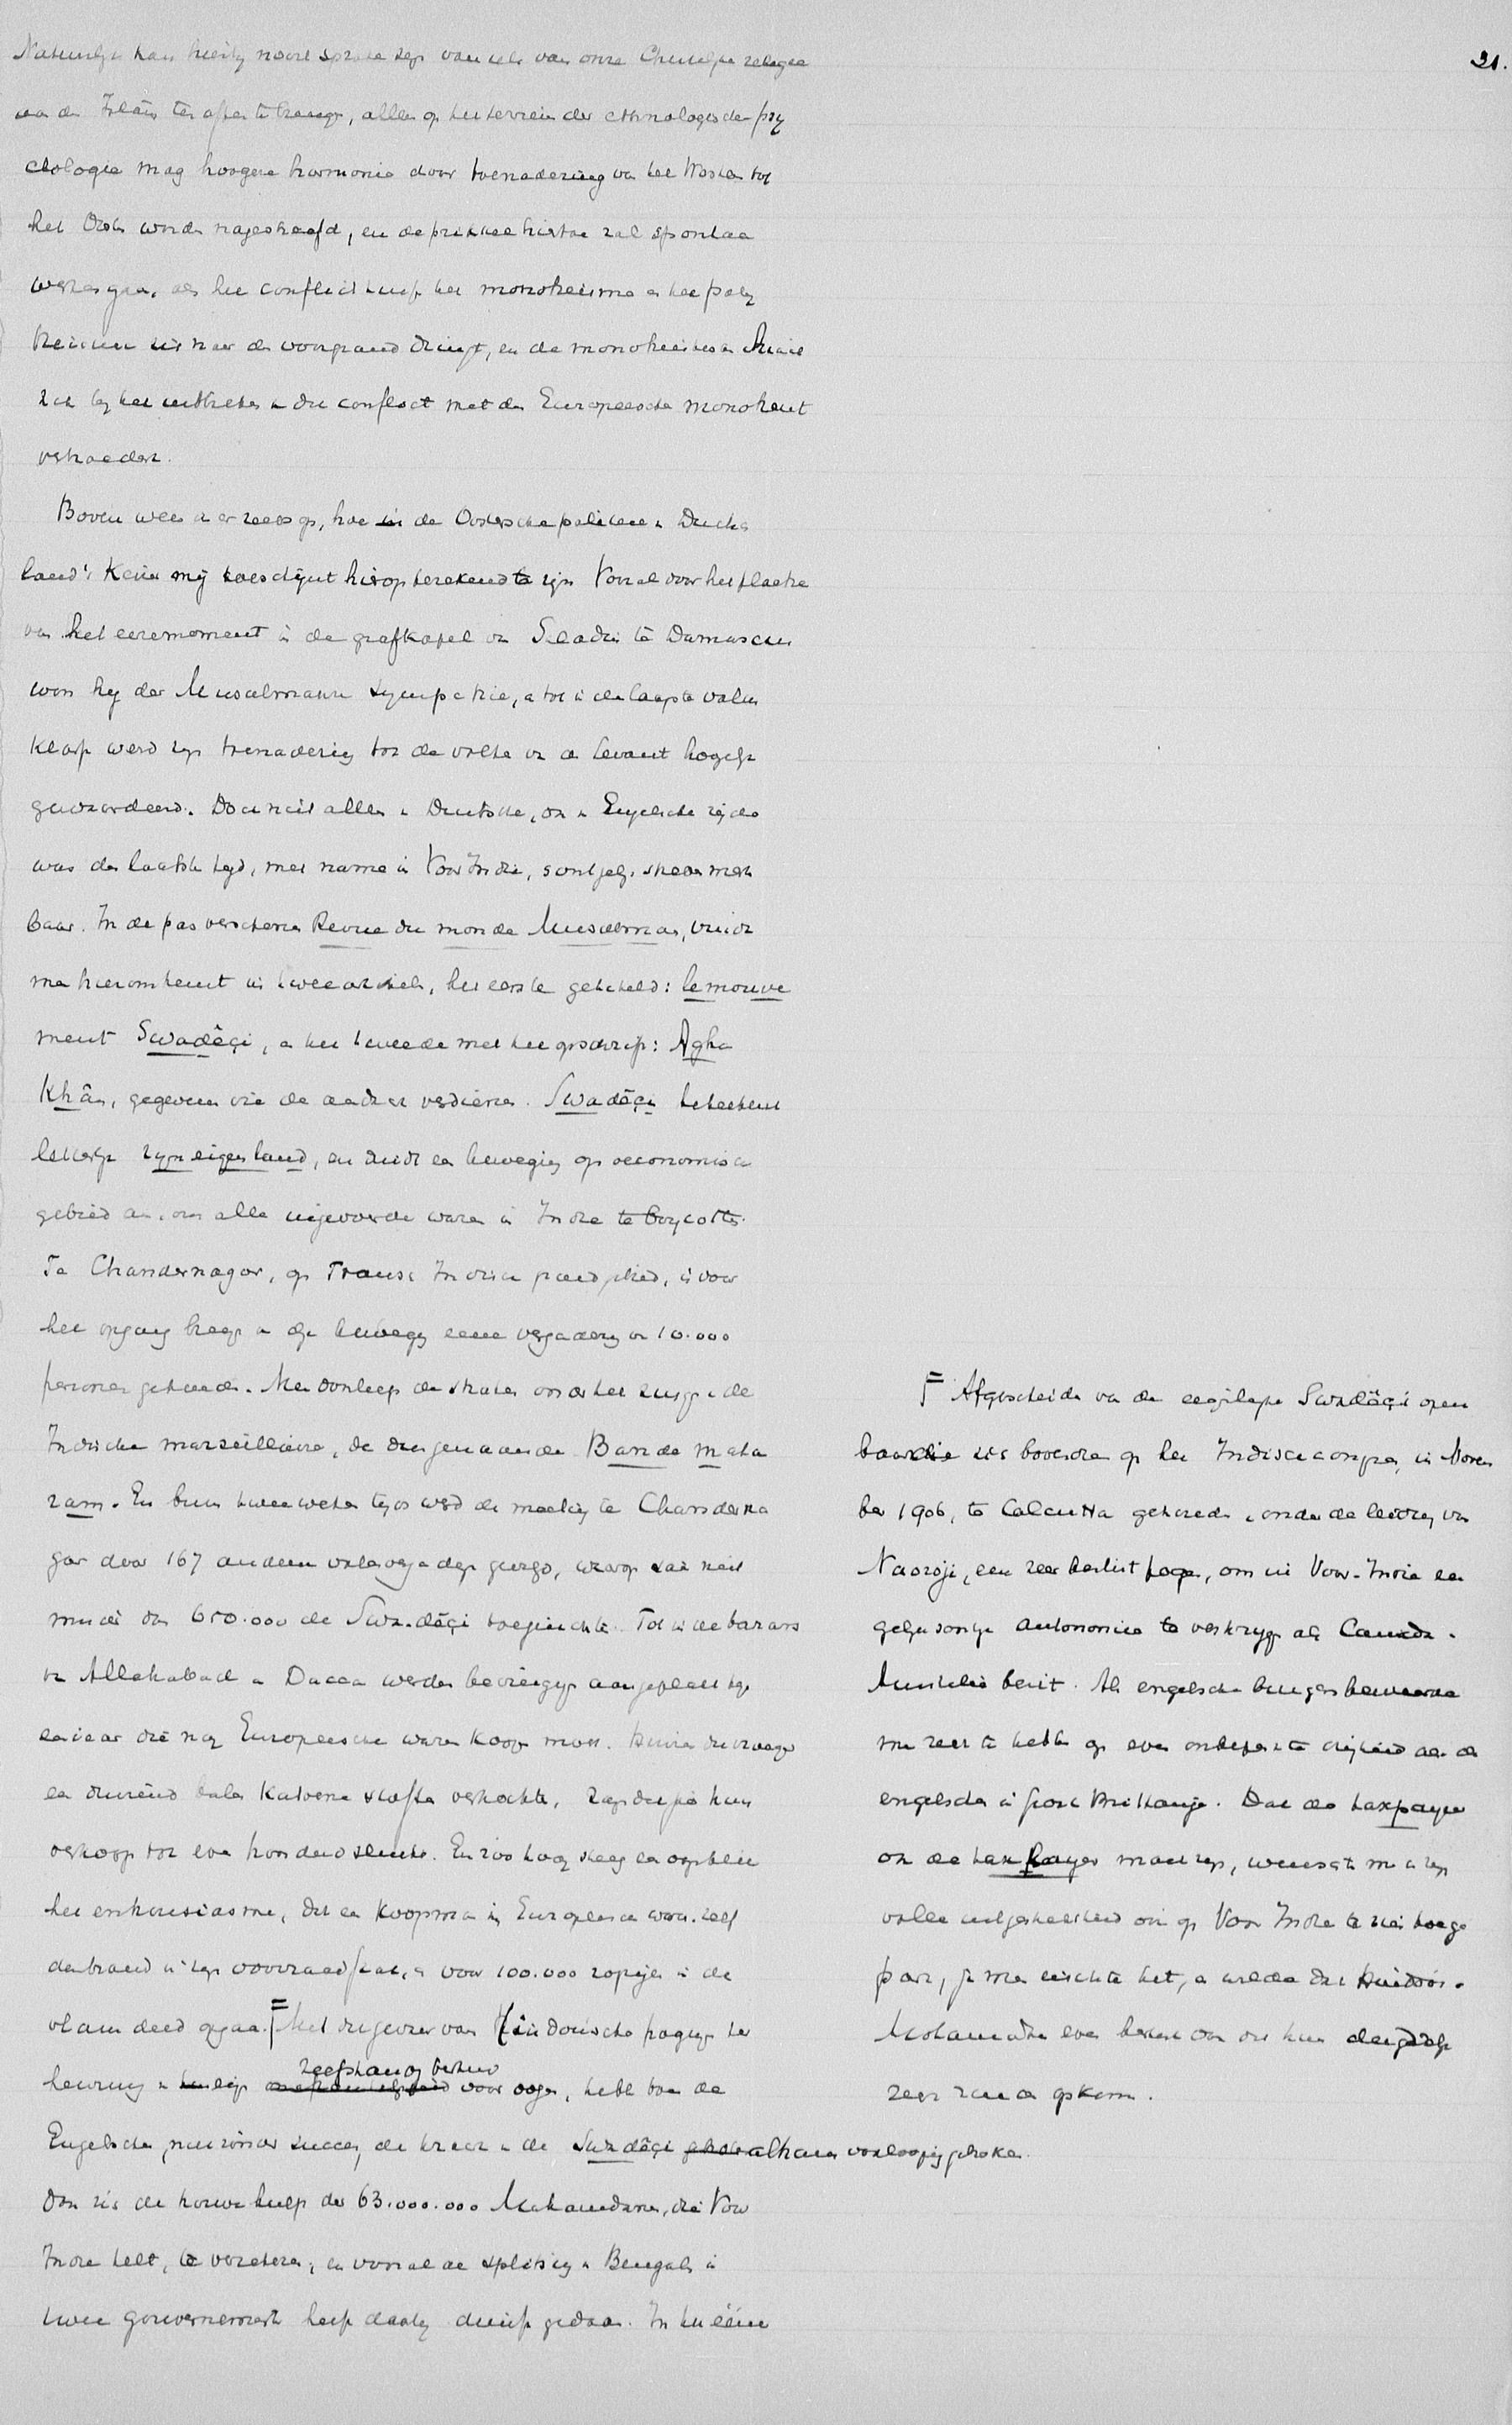 21.
Natuurlijk kan hierbij nooit sprake zijn van iets van onze Christelijke religie
aan den Islam ten offer te brengen, alleen op het terrein der ethnologische psy
chologie mag hoogere harmonie door toenadering van het Westen tot
het Oosten worden nagestreefd, en de prikkel hiertoe zal spontaan
werken gaan, als het conflict tusschen het monotheisme en het poly
theisme zich naar den voorgrond dringt, en de monotheisten
zich bij het uitbreken van dit conflict met den Europeeschen monotheist
verbroederen.
Boven wees ik er reeds op, hoe in de Oostersche politiek van Duitsch
land's Keizer mij toeschijnt hierop berekend te zijn. Vooral door het plaatsen
van het eeremonument in de grafkapel van Saladin te Damascus
won hij der Muselmannen sympathie, en tot in de laagste volks
klasse werd zijn toenadering tot de volken van de Levant hoogelijk
gewaardeerd. Doch niet alleen van Duitsche, ook van Engelsche zijde
was de laatste tijd, met name in Voor Indië, soortgelijk streven merk
baar. In de pas verschenen Revue du monde Musulman, vindt
men hieromtrent in twee artikelen, het eerste getiteld: le mouve
ment Swadêçi, en het tweede met het opschrift: Agha
Khân, gegevens die de aandacht verdienen. Swadêçi beteekent
letterlijk zijn eigen land, en duidt een beweging op oeconomisch
gebied aan, om alle ingevoerde waren in Indië te boycotten.
Te Chandernagor, op Fransch Indisch grondgebied, is voor
het ingang brengen van deze beweging eene vergadering van 10.000
personen gehouden. Men doorliep de straten onder het zingen van de
Indische marseillaise, de dusgenaamde Bande Mata
ram. En binnen twee weken tijds werd de meeting te Chanderna
gor door 167 andere volksvergaderingen gevolgd, waarop zich niet
minder dan 650.000 de Swadêçi toejuichten. Tot in de bazars
van Allahabad en Dacca werden bedreigingen aangeplakt tegen
een ieder die nog Europeesche waren koopen mocht. Huizen die vroeger
een duizend balen katoenen stoffen verkochten, zagen dit jaar hun
verkoop tot even honderd slinken. En zoo hoog steeg een oogenblik
het enthousiasme, dat een koopman in Europeesche waren zelf
den brand in zijn voorraad stak, en voor 100.000 ropijen in de
vlam deed opgaan. Met dit gevaar van Hindoesche pogingen ter
zelfstandig bestuur
voor oogen, hebben toen de
Engelschen, niet zonder succes, de kracht van de Swadêçi althans voorloopig gebroken
door zich de trouwe hulp der 63.000.000 Mahomedanen, die Voor
Indië telt, te verzekeren, en vooral de splitsing van Bengalen in
twee gouvernementen heeft daarbij dienst gedaan. In het ééne
Afgescheiden van de eigenlijke Swadêçi open
baarde zich bovendien op het Indisch congres, in Novem
ber 1906, te Calcutta gehouden, onder de leiding van
Naoroji, een zeer beslist pogen, om in Voor-Indië een
gelijksoortige autonomie te verkrijgen als Canada en
Australië bezit. Als engelsche burgers beweerde
men recht te hebben op even onbeperkte vrijheid als de
engelschen in Groot Brittanje. Dat de taxpayer
ook de tax layer moet zijn, wenschte men in zijn
volle uitgestrektheid ook op Voor Indië te zien toege
past, ja men eischte het, en wilde dat Hindoes en
Mohamedanen even beslist voor dit hun deugdelijk
recht zouden opkomen.